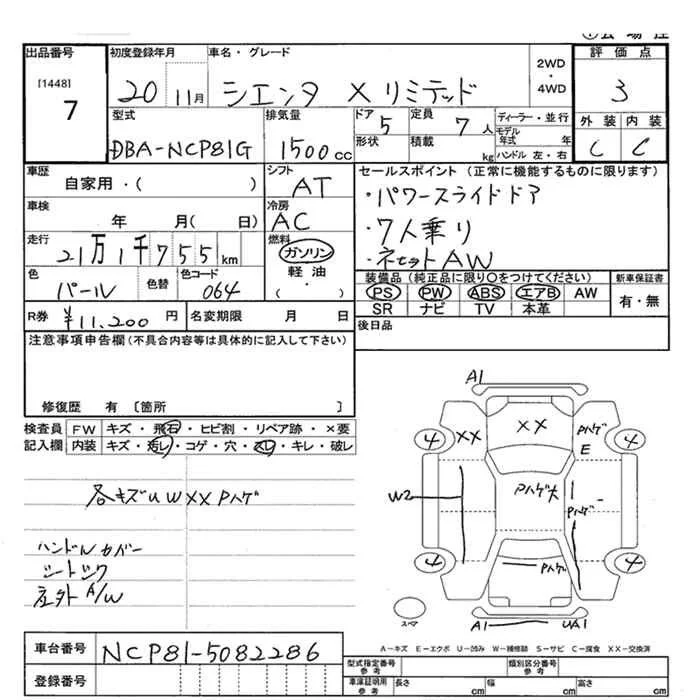 出品番号
[1448]
7
初度登録年月
20 11月
車名・グレード
シエンタ Xリミテッド
2WD
・
4WD
評価点
3
外装 内装
C C
型式
DBA-NCP81G
排気量
1500cc
ドア
5
形状
定員
7人
積載
kg
ディーラー・並行
モデル年式 年
ハンドル 左・右
車歴
自家用・( )
シフト
AT
車検
年 月( 日)
冷房
AC
走行
21万1千755km
燃料
ガソリン
軽油
・( )
色
パール
色替
色コード
064
R券 ¥11,200円
名変期限 月 日
セールスポイント (正常に機能するものに限ります)
・パワースライドドア
・7人乗り
・ AW
装備品 (純正品に限り○をつけてください)
PS PW ABS エアB AW
SR ナビ TV 本革
新車保証書
有・無
後日品
注意事項申告欄(不具合内容等は具体的に記入して下さい)
修復歴 有 〔箇所 〕
検査員記入欄
FW キズ・飛石・ヒビ割・リペア跡・×要
内装 キズ・汚レ・コゲ・穴・スレ・キレ・破レ
各キズU W XX Pハゲ
ハンドルカバー
社外A/W
A1
4 XX XX Pハゲ E 4
W2 Pハゲ大 Pハゲ
4 Pハゲ 4
スペア
A1 UA1
A-キズ E-エクボ U-凹み W-補修跡 S-サビ C-腐食 XX-交換済
車台番号 NCP81-5082286
登録番号
型式指定番号 参考
類別区分番号 参考
車庫証明用 参考
長さ cm
幅 cm
高さ cm